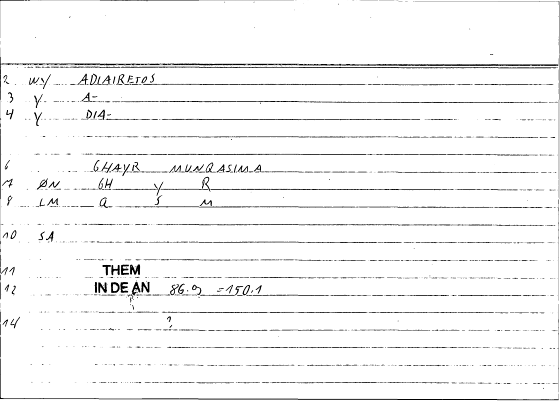 2 WY ADIAIRETOS
3 Y A-
4 Y DIA-
6 GHAYR MUNQASIMA
7 ØN GH Y R
8 LM Q S M
10 SA
11 THEM
12 IN DE AN 86.9 =150.1
14 ?